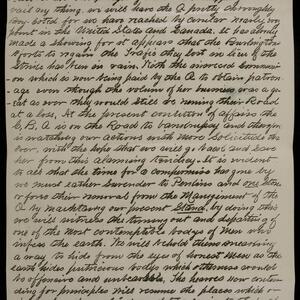 vail any thing, as will have the Q party thoroughly
boycotted for we have reached by circular nearly every
point in the United States and Canada. It has already
made a showing for it appears that the Q
efforts to regain the traffic they lost in lieu of the
Strike has been in vain. With the increased commis-
sion which is now being paid by the Q to obtain patron-
age even though the volume of her business was as g-
reat as ever they would still be running their Road
at a loss. At the present condition of affairs the
C, B, & Q on the Road to bankruptcy and though
is watching our actions with more solicitude than
ever, with the hope that we will yeald and save
her from this alarming tendency. It is evident
to all that the time for a compromise has gone by
we must eather surrender to Perkins and Stone
or force their removal from the Management of the
Q by maintaining our present Stand, by doing this
we will witness the turning out and departing of
one of the most contemptible bodys of men who
infest the earth. We will behold them sneaking
away to hide from the eyes of honest men as the
earth hides putricious bodys which otherwise would
be offensive and unbearable. The heroes now conten-
ding for principles will resume the places which